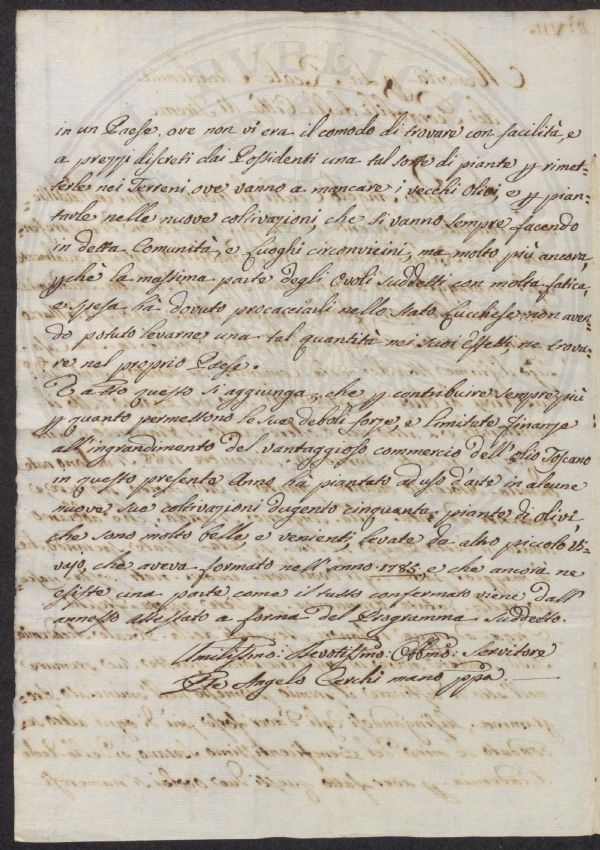 in un Paese, ove non vi era il comodo di trovare con facilità, e
a prezzi discreti dai Possidenti una tal sorte di piante p rimet=
terle nei Terreni, ove vanno a mancare i vecchi Olivi, e p pian=
tarle nelle nuove coltivazioni, che si vanno sempre facendo
in detta Comunità, e luoghi circonvicini, ma molto più ancora,
pchè la massima parte degli Ovoli suddetti con molta fatica,
e spesa hà dovuto procacciarli nello Stato Lucchese, non aven=
do potuto levarne una tal quantità nei suoi Effetti, ne trova=
re nel proprio Paese.
E a tto questo si aggiunga, che p contribuire sempre più
p quanto permettono le sue deboli forze, e limitate finanze
all'ingrandimento del vantaggioso commercio dell'olio Toscano
in questo presente Anno hà piantato ad uso d'arte in alcune
nuove sue coltivazioni dugento cinquanta piante di olivi
che sono molto belle, e venienti, levate da altro piccolo Vi=
vajo, che aveva formato nell'anno 1785, e che ancora ne
esiste una parte come il tutto confermato viene dall'
annesso attestato a forma del Programma suddetto.
Umilissimo: Devotissimo: Obbmo: Servitore
Angelo Cerchi mano ppa
PVBLICA